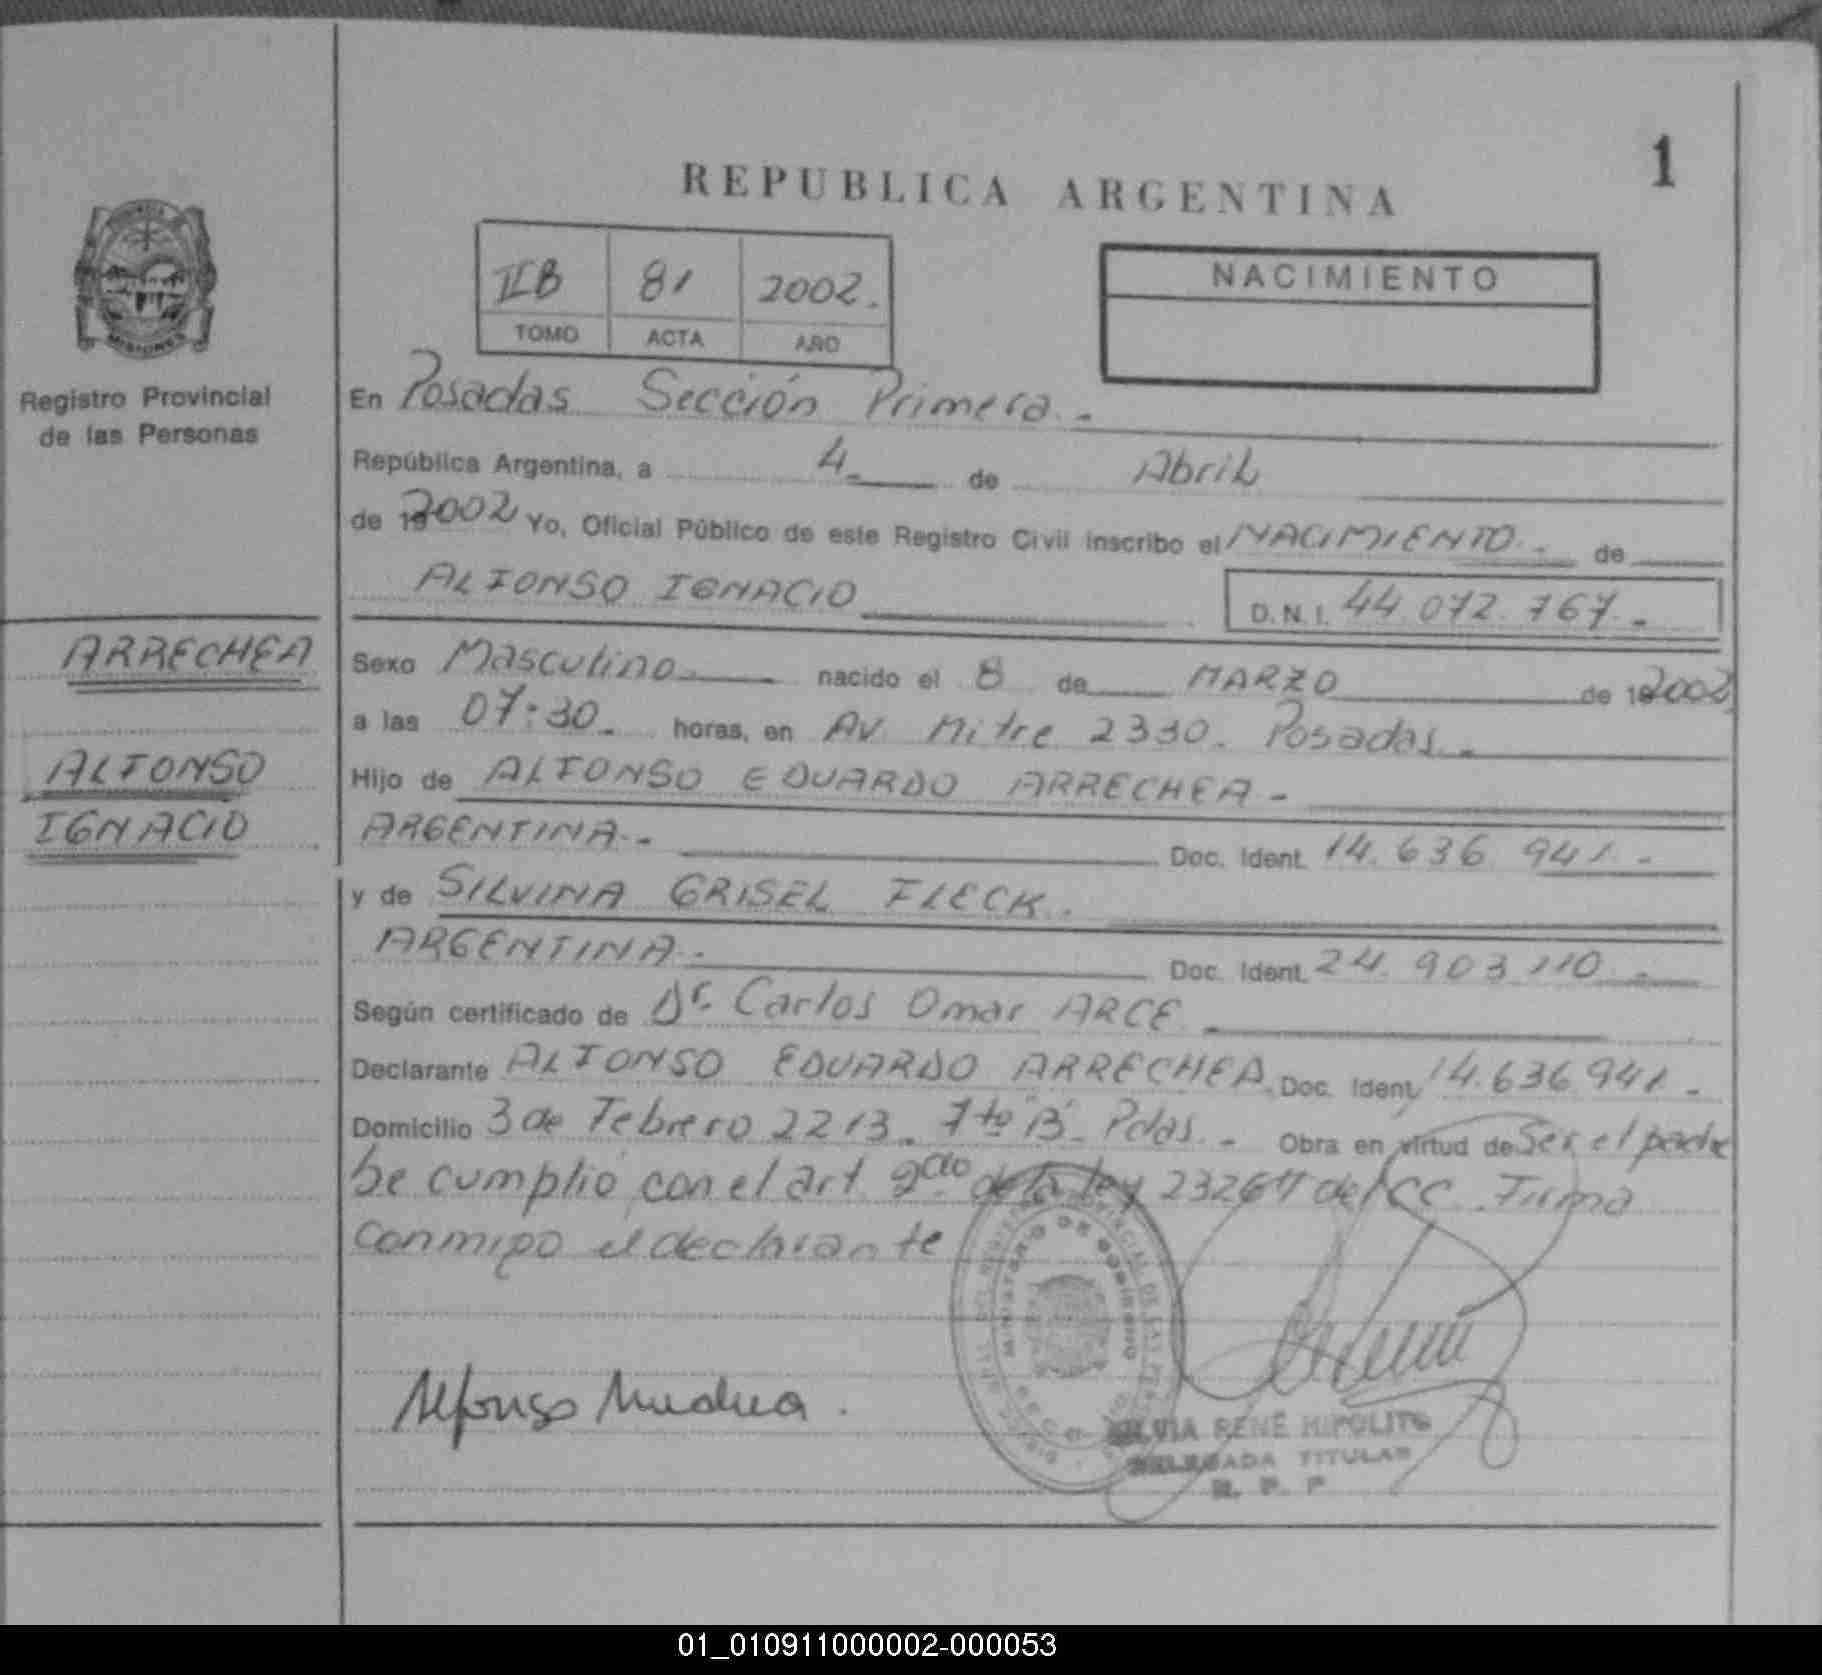 1
REPUBLICA ARGENTINA
IIB 81 2002.
TOMO ACTA AÑO
NACIMIENTO
MISIONES
Registro Provincial
de las Personas
ARRECHEA
ALFONSO
IGNACIO
En Posadas Sección Primera.-
República Argentina, a 4 de Abril
de 19 2002 Yo, Oficial Público de este Registro Civil inscribo el NACIMIENTO.- de
ALFONSO IGNACIO D.N.I. 44.072.767.-
Sexo Masculino nacido el 8 de MARZO de 19 2002
a las 07:30 horas, en Av. Mitre 2330. Posadas.-
Hijo de ALFONSO EDUARDO ARRECHEA.-
ARGENTINA.- Doc. Ident. 14.636.941.-
y de SILVINA GRISEL FLECK.
ARGENTINA.- Doc. Ident. 24.903.110.-
Según certificado de Dr. Carlos Omar ARCE.
Declarante ALFONSO EDUARDO ARRECHEA. Doc. Ident. 14.636.941.-
Domicilio 3 de Febrero 2213. 7to "B". Pdas.- Obra en virtud de Ser el padre
Se cumplió con el art. 2do de la ley 23264 del CC. Firma
conmigo el declarante
MINISTERIO DE GOBIERNO
Alfonso Arrechea.
SILVIA RENE HIPOLITO
DELEGADA TITULAR
R. P. P
01_010911000002-000053